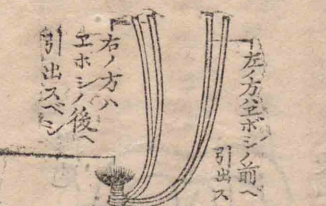 左ノ方ハヱボシノ前ヘ
引出ス
右ノ方ハ
ヱホシノ後ヘ
引出スベシ